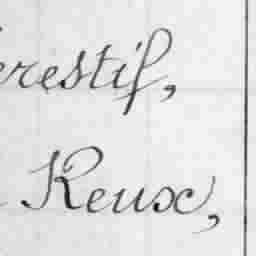 erestif,
Reux,